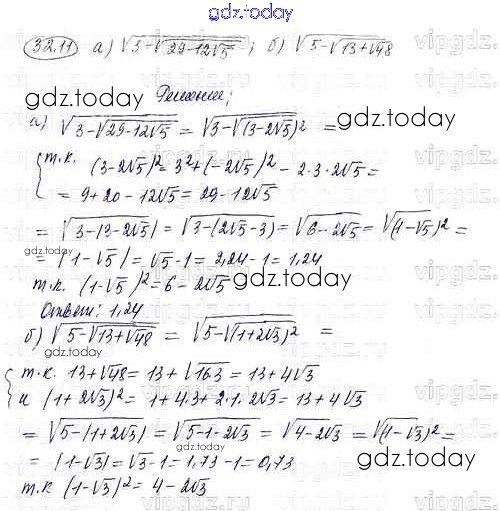 gdz.today
32.11 а) √(3-√(29-12√5)); б) √(5-√(13+√48))
gdz.today
Решение;
gdz.today
а) √(3-√(29-12√5)) = √(3-√(3-2√5)²) =
{ т.к. (3-2√5)² = 3²+(-2√5)² - 2·3·2√5 =
= 9+20-12√5 = 29-12√5
= √(3-|3-2√5|) = √(3-(2√5-3)) = √(6-2√5) = √(1-√5)² =
gdz.today
= |1-√5| = √5-1 = 2,24-1 = 1,24
gdz.today
т.к. (1-√5)² = 6-2√5
Ответ: 1,24
б) √(5-√(13+√48)) = √(5-√(1+2√3)²) =
gdz.today
{ т.к. 13+√48 = 13+√16·3 = 13+4√3
и (1+2√3)² = 1+4·3+2·1·2√3 = 13+4√3
= √(5-|1+2√3|) = √(5-1-2√3) = √(4-2√3) = √(1-√3)² =
= |1-√3| = √3-1 = 1,73-1 = 0,73
gdz.today
т.к (1-√3)² = 4-2√3